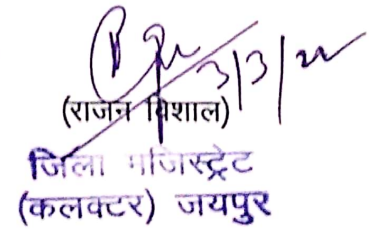 3/3/22
(राजन विशाल)
जिला मजिस्ट्रेट
(कलक्टर) जयपुर